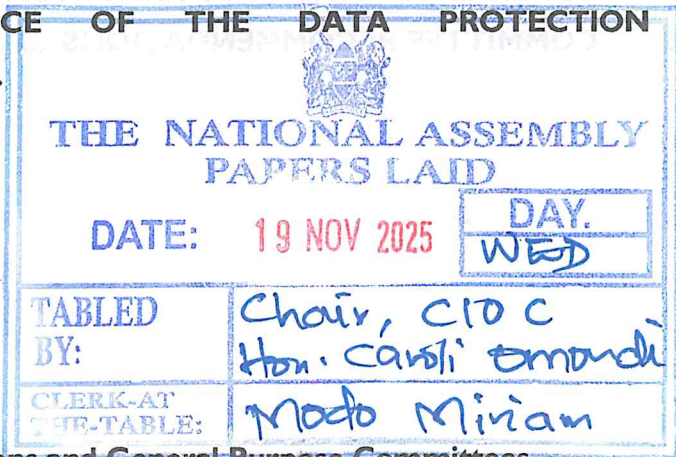 CE OF THE DATA PROTECTION
THE NATIONAL ASSEMBLY
PAPERS LAID
DATE: 19 NOV 2025
DAY.
WED
TABLED BY:
Chair, CIOC
Hon. Caroli Omondi
CLERK-AT THE-TABLE:
Modo Miriam
ons and General Purpose Committees